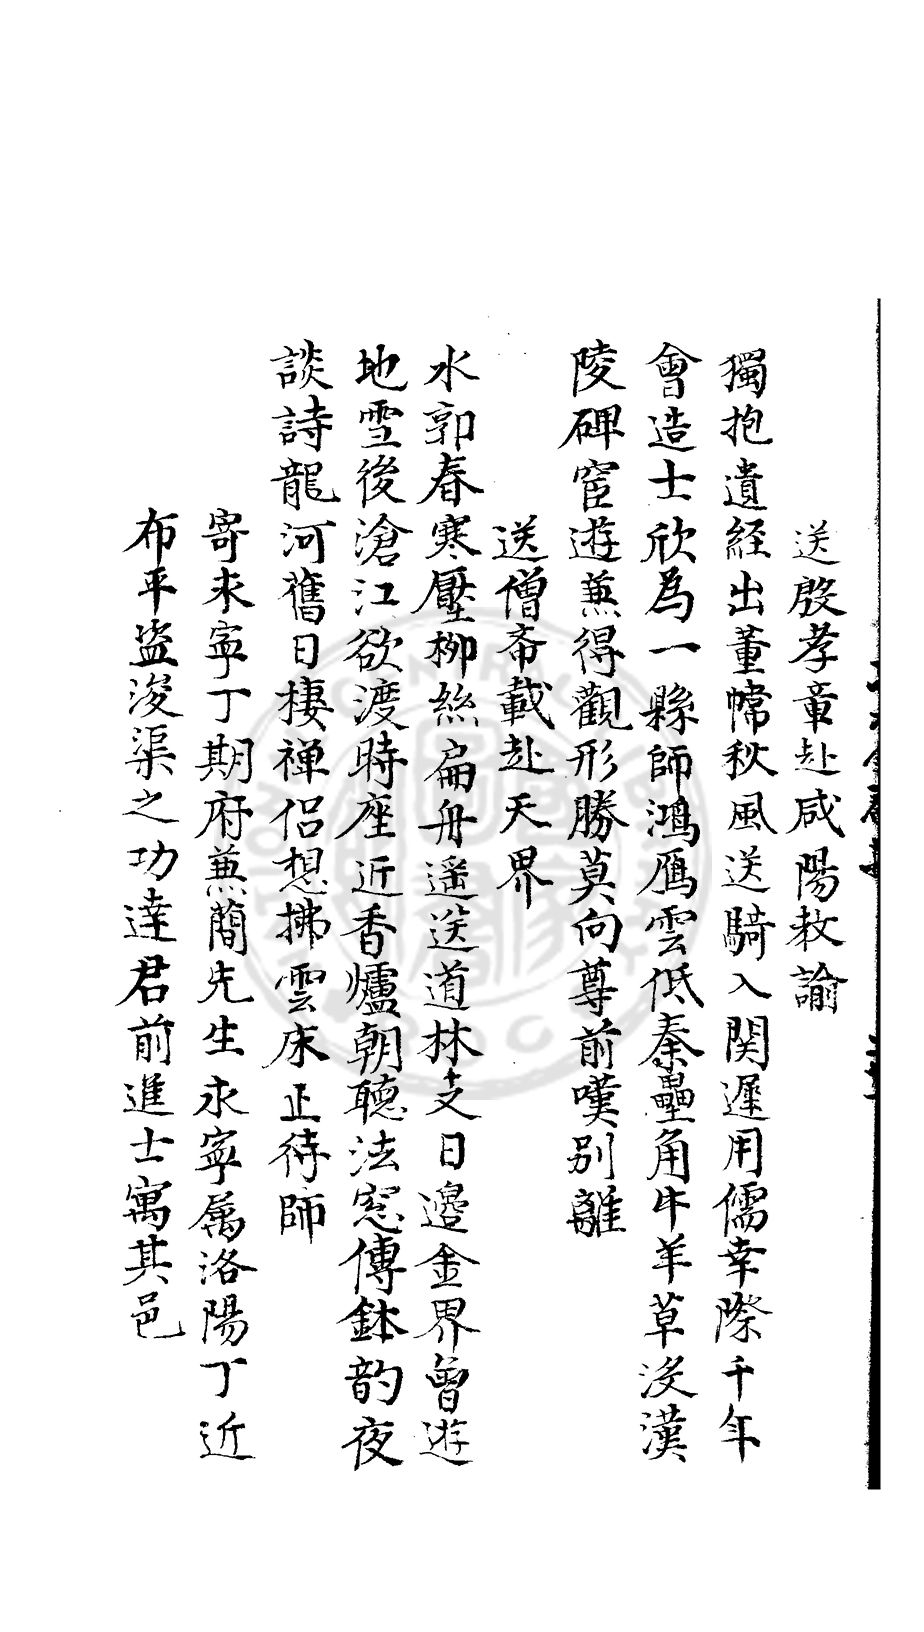 送殷孝章赴咸陽教諭
獨抱遺経出董幃秋風送騎入関遲用儒幸際千年
會造士欣為一縣師鴻鴈雲低秦壘角牛羊草没漢
陵碑宦遊兼得觀形勝莫向尊前嘆别離
送僧帝載赴天界
水郭春寒壓栁絲扁舟遥送道林支日邊金界曾遊
地雪後滄江欲渡時座近香爐朝聴法窓傳鉢韵夜
談詩龍河舊日棲禅侣想拂雲床正待師
寄永寧丁期府兼簡先生永寧属洛陽丁近
布平盗浚渠之功達君前進士寓其邑